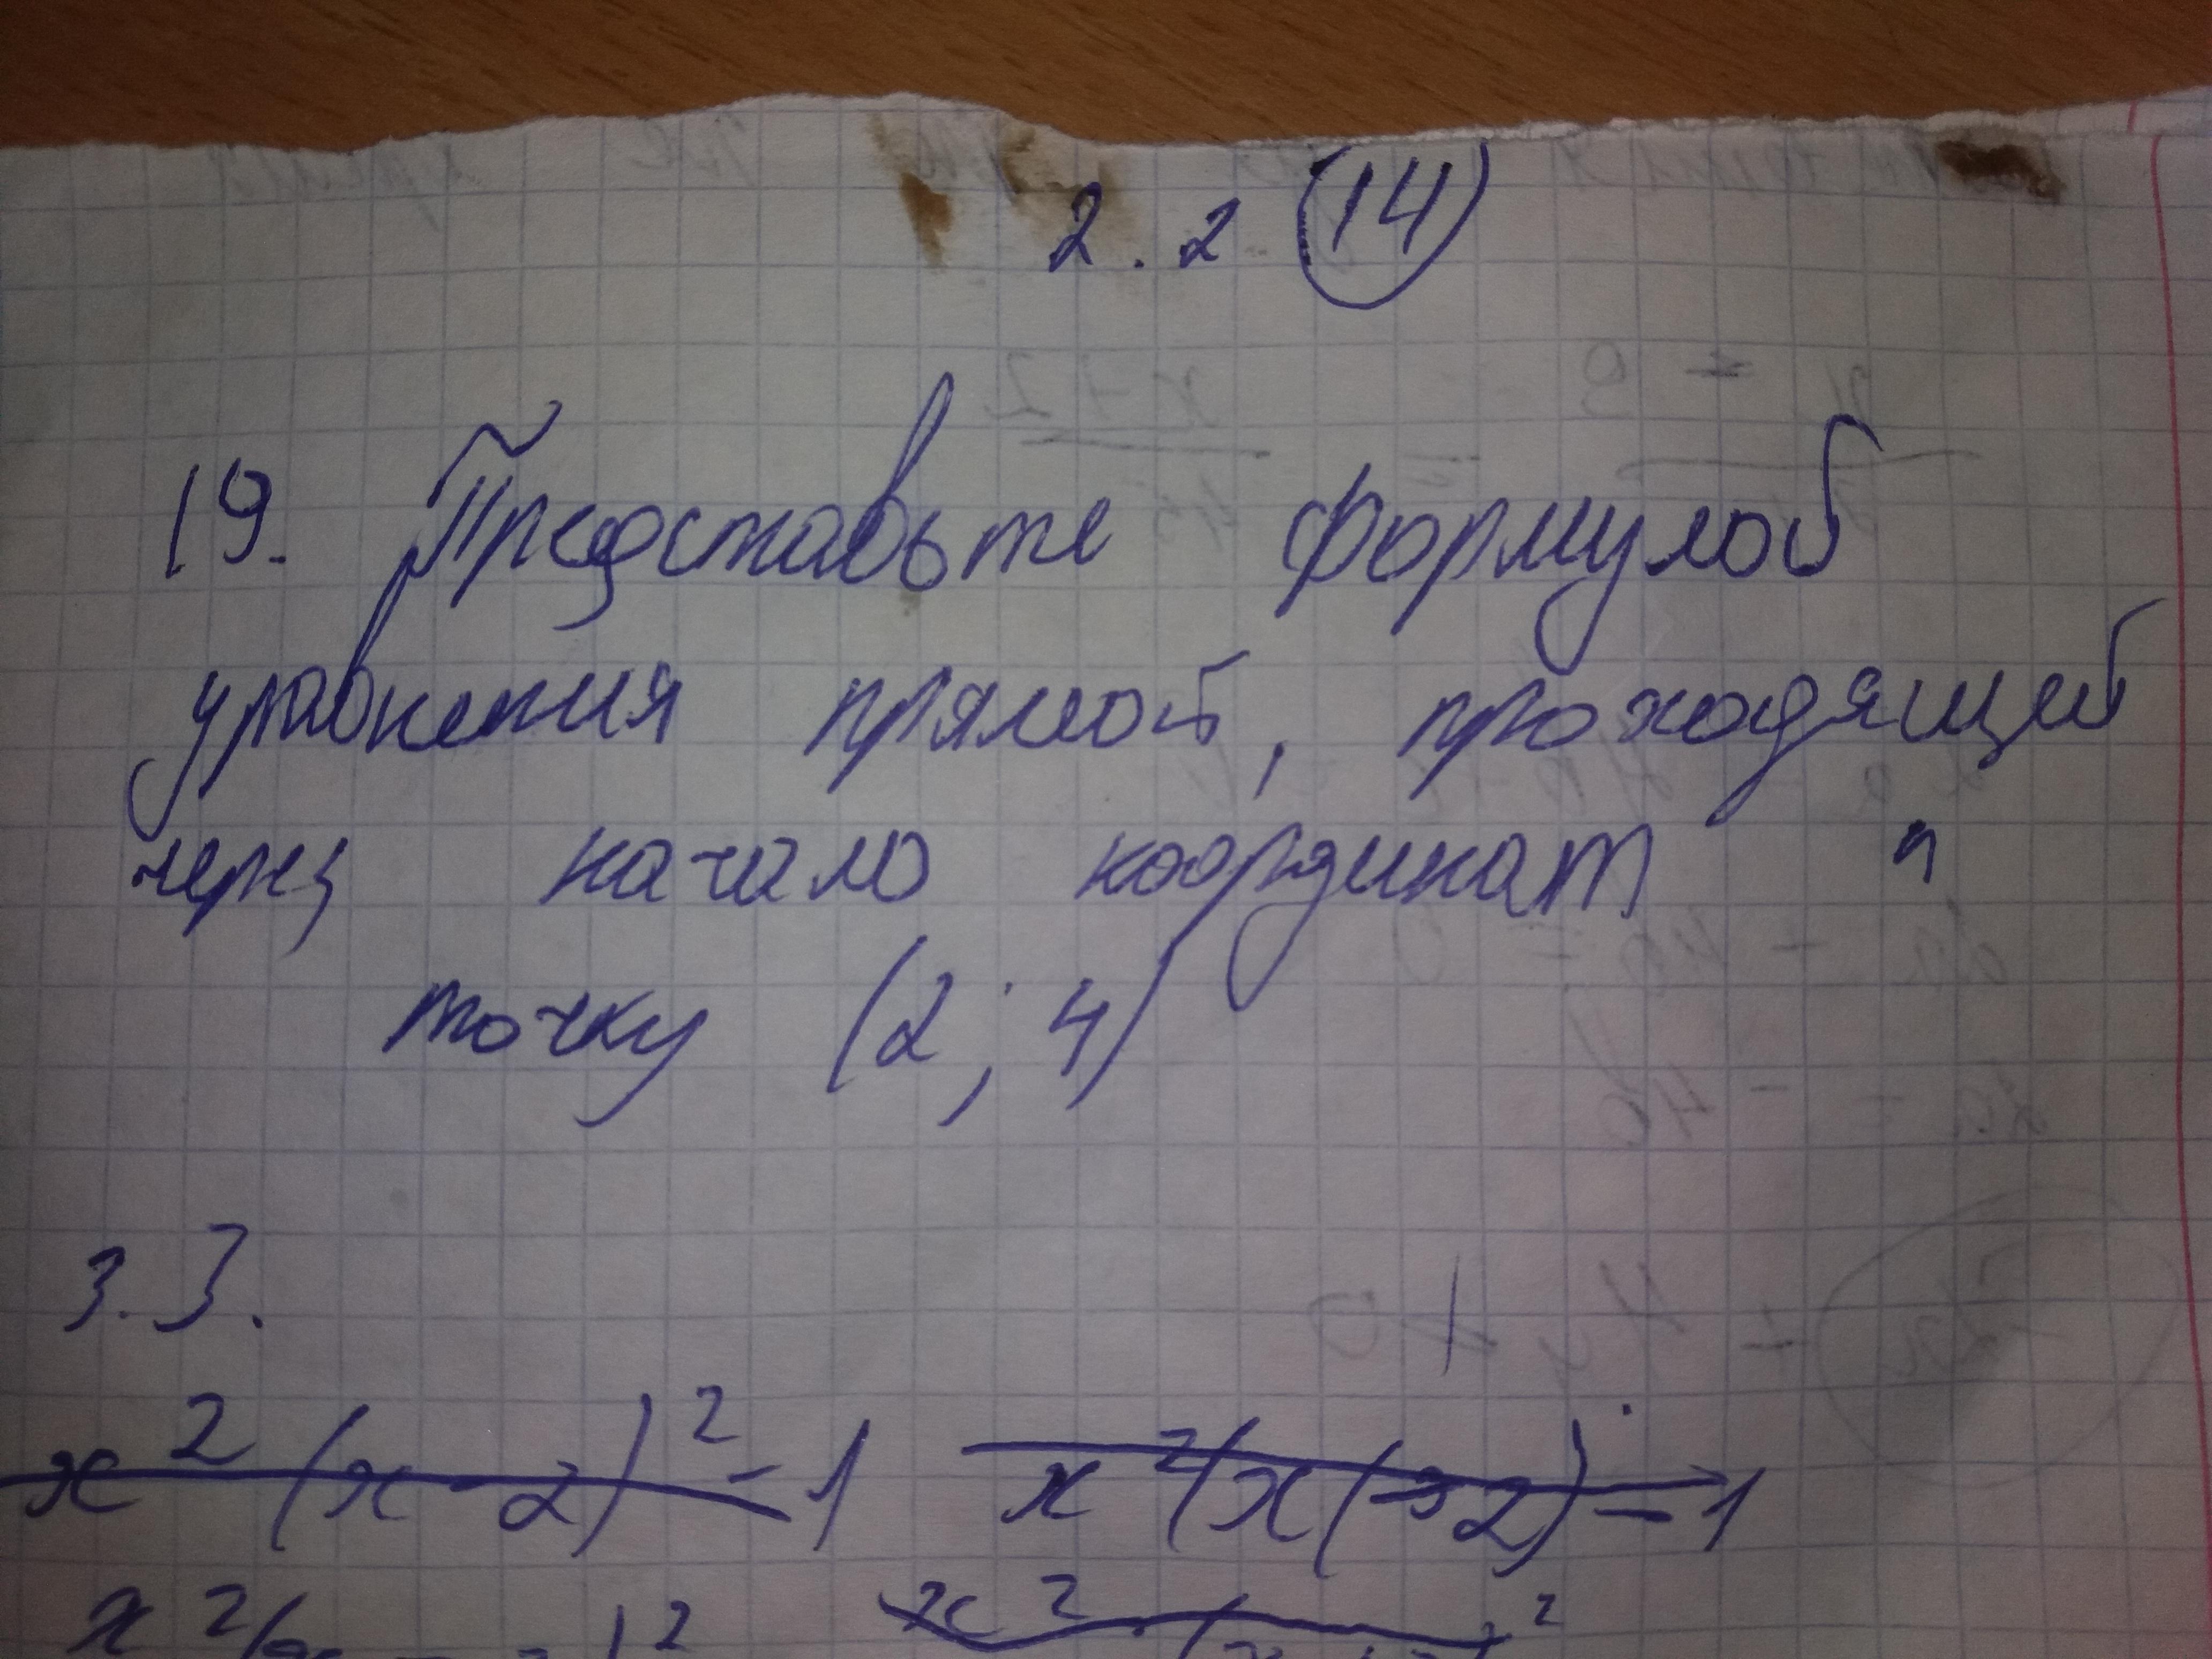 2.2 (14)
19. Представьте формулой
уравнения прямой, проходящей
через начало координат и
точку (2; 4)
3.3.
x² (x-2)² - 1 x²(x(-2) - 1